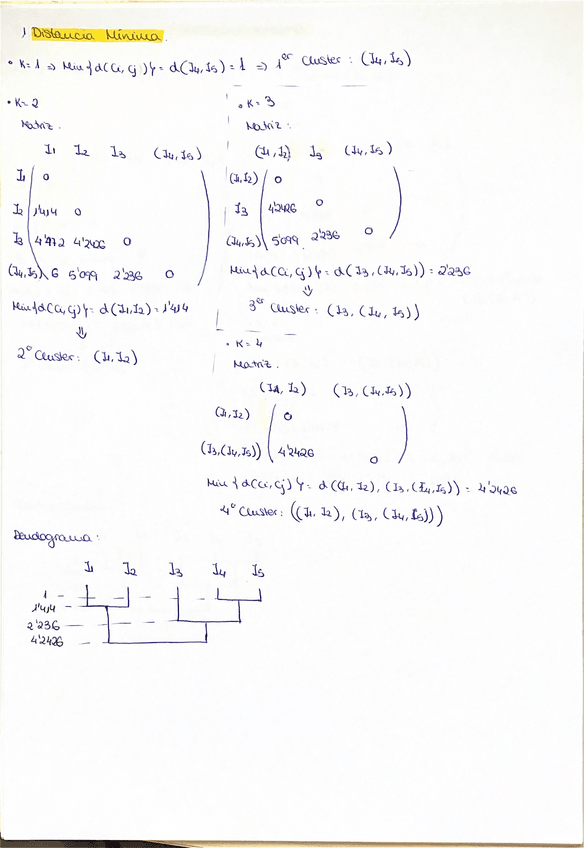 1) Distancia Mínima.
• K=1 ⇒ Min{d(Ci, Cj)} = d(I4, I5) = 1 ⇒ 1er Cluster: (I4, I5)
• K=2
Matriz:
I1 I2 I3 (I4, I5)
I1 0
I2 1'414 0
I3 4'472 4'2426 0
(I4, I5) 6 5'099 2'236 0
Min{d(Ci, Cj)} = d(I1, I2) = 1'414
⇓
2º Cluster: (I1, I2)
• K=3
Matriz:
(I1, I2) I3 (I4, I5)
(I1, I2) 0
I3 4'2426 0
(I4, I5) 5'099 2'236 0
Min{d(Ci, Cj)} = d(I3, (I4, I5)) = 2'236
⇓
3er Cluster: (I3, (I4, I5))
• K=4
Matriz:
(I1, I2) (I3, (I4, I5))
(I1, I2) 0
(I3, (I4, I5)) 4'2426 0
Min{d(Ci, Cj)} = d((I1, I2), (I3, (I4, I5)) = 4'2426
4º Cluster: ((I1, I2), (I3, (I4, I5)))
Dendograma:
I1 I2 I3 I4 I5
1
1'414
2'236
4'2426